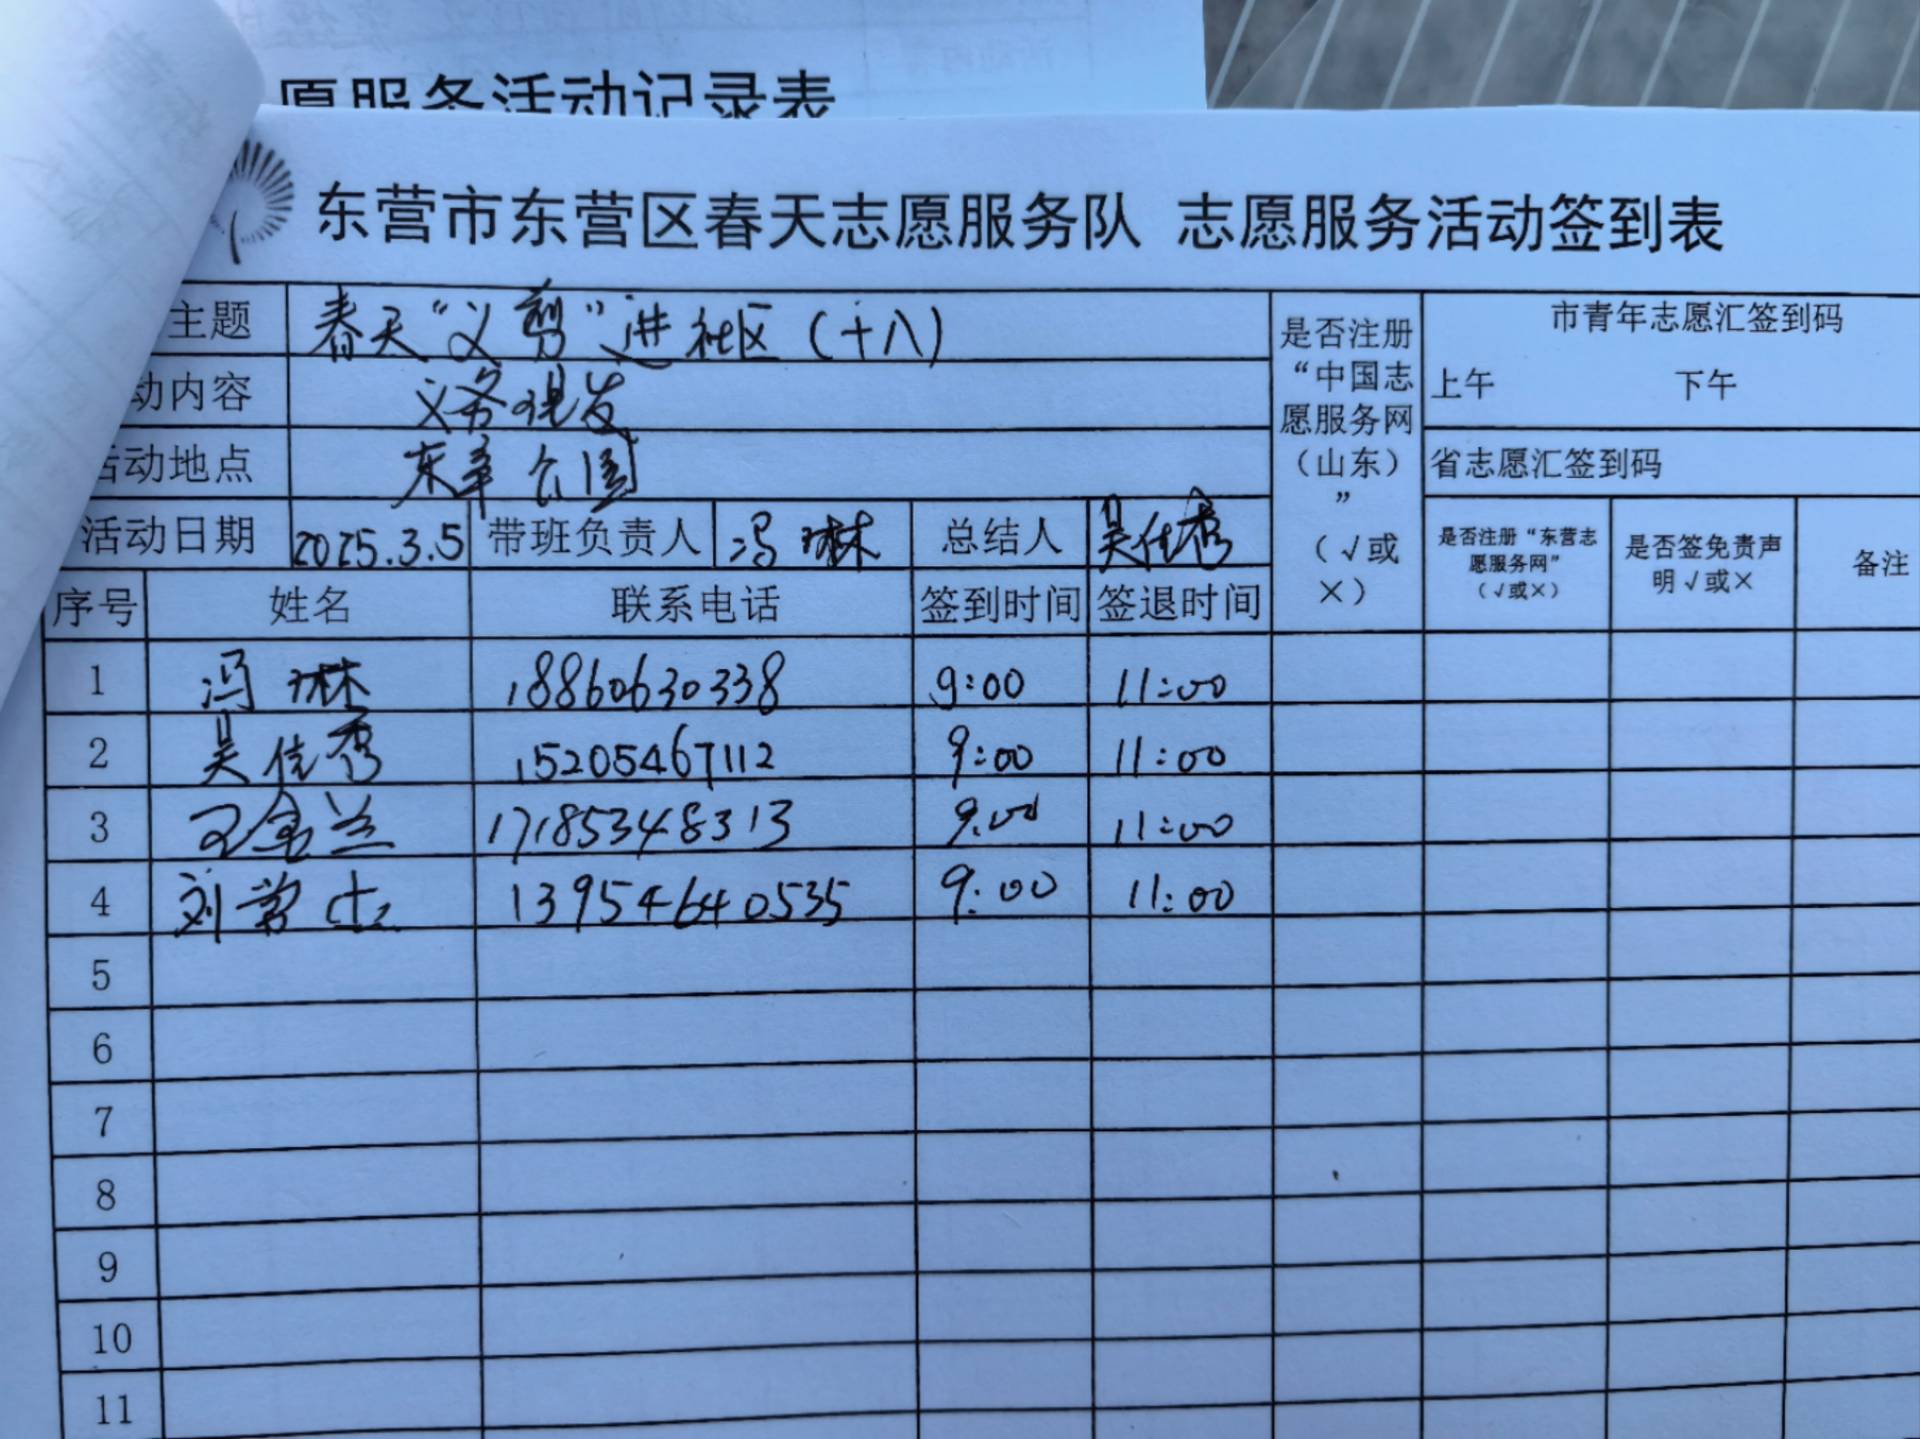 愿服务活动记录表
东营市东营区春天志愿服务队 志愿服务活动签到表
主题 春天“义剪”进社区（十八）
动内容 义务理发
活动地点 东 公园
活动日期 2025.3.5 带班负责人 冯琳 总结人 吴佳秀
是否注册“中国志愿服务网（山东）”（√或×）
市青年志愿汇签到码
上午 下午
省志愿汇签到码
是否注册“东营志愿服务网”（√或×） 是否签免责声明√或× 备注
序号 姓名 联系电话 签到时间 签退时间
1 冯琳 18860630338 9:00 11:00
2 吴佳秀 15205467112 9:00 11:00
3 王金兰 17185348313 9:00 11:00
4 刘 13954640535 9:00 11:00
5
6
7
8
9
10
11